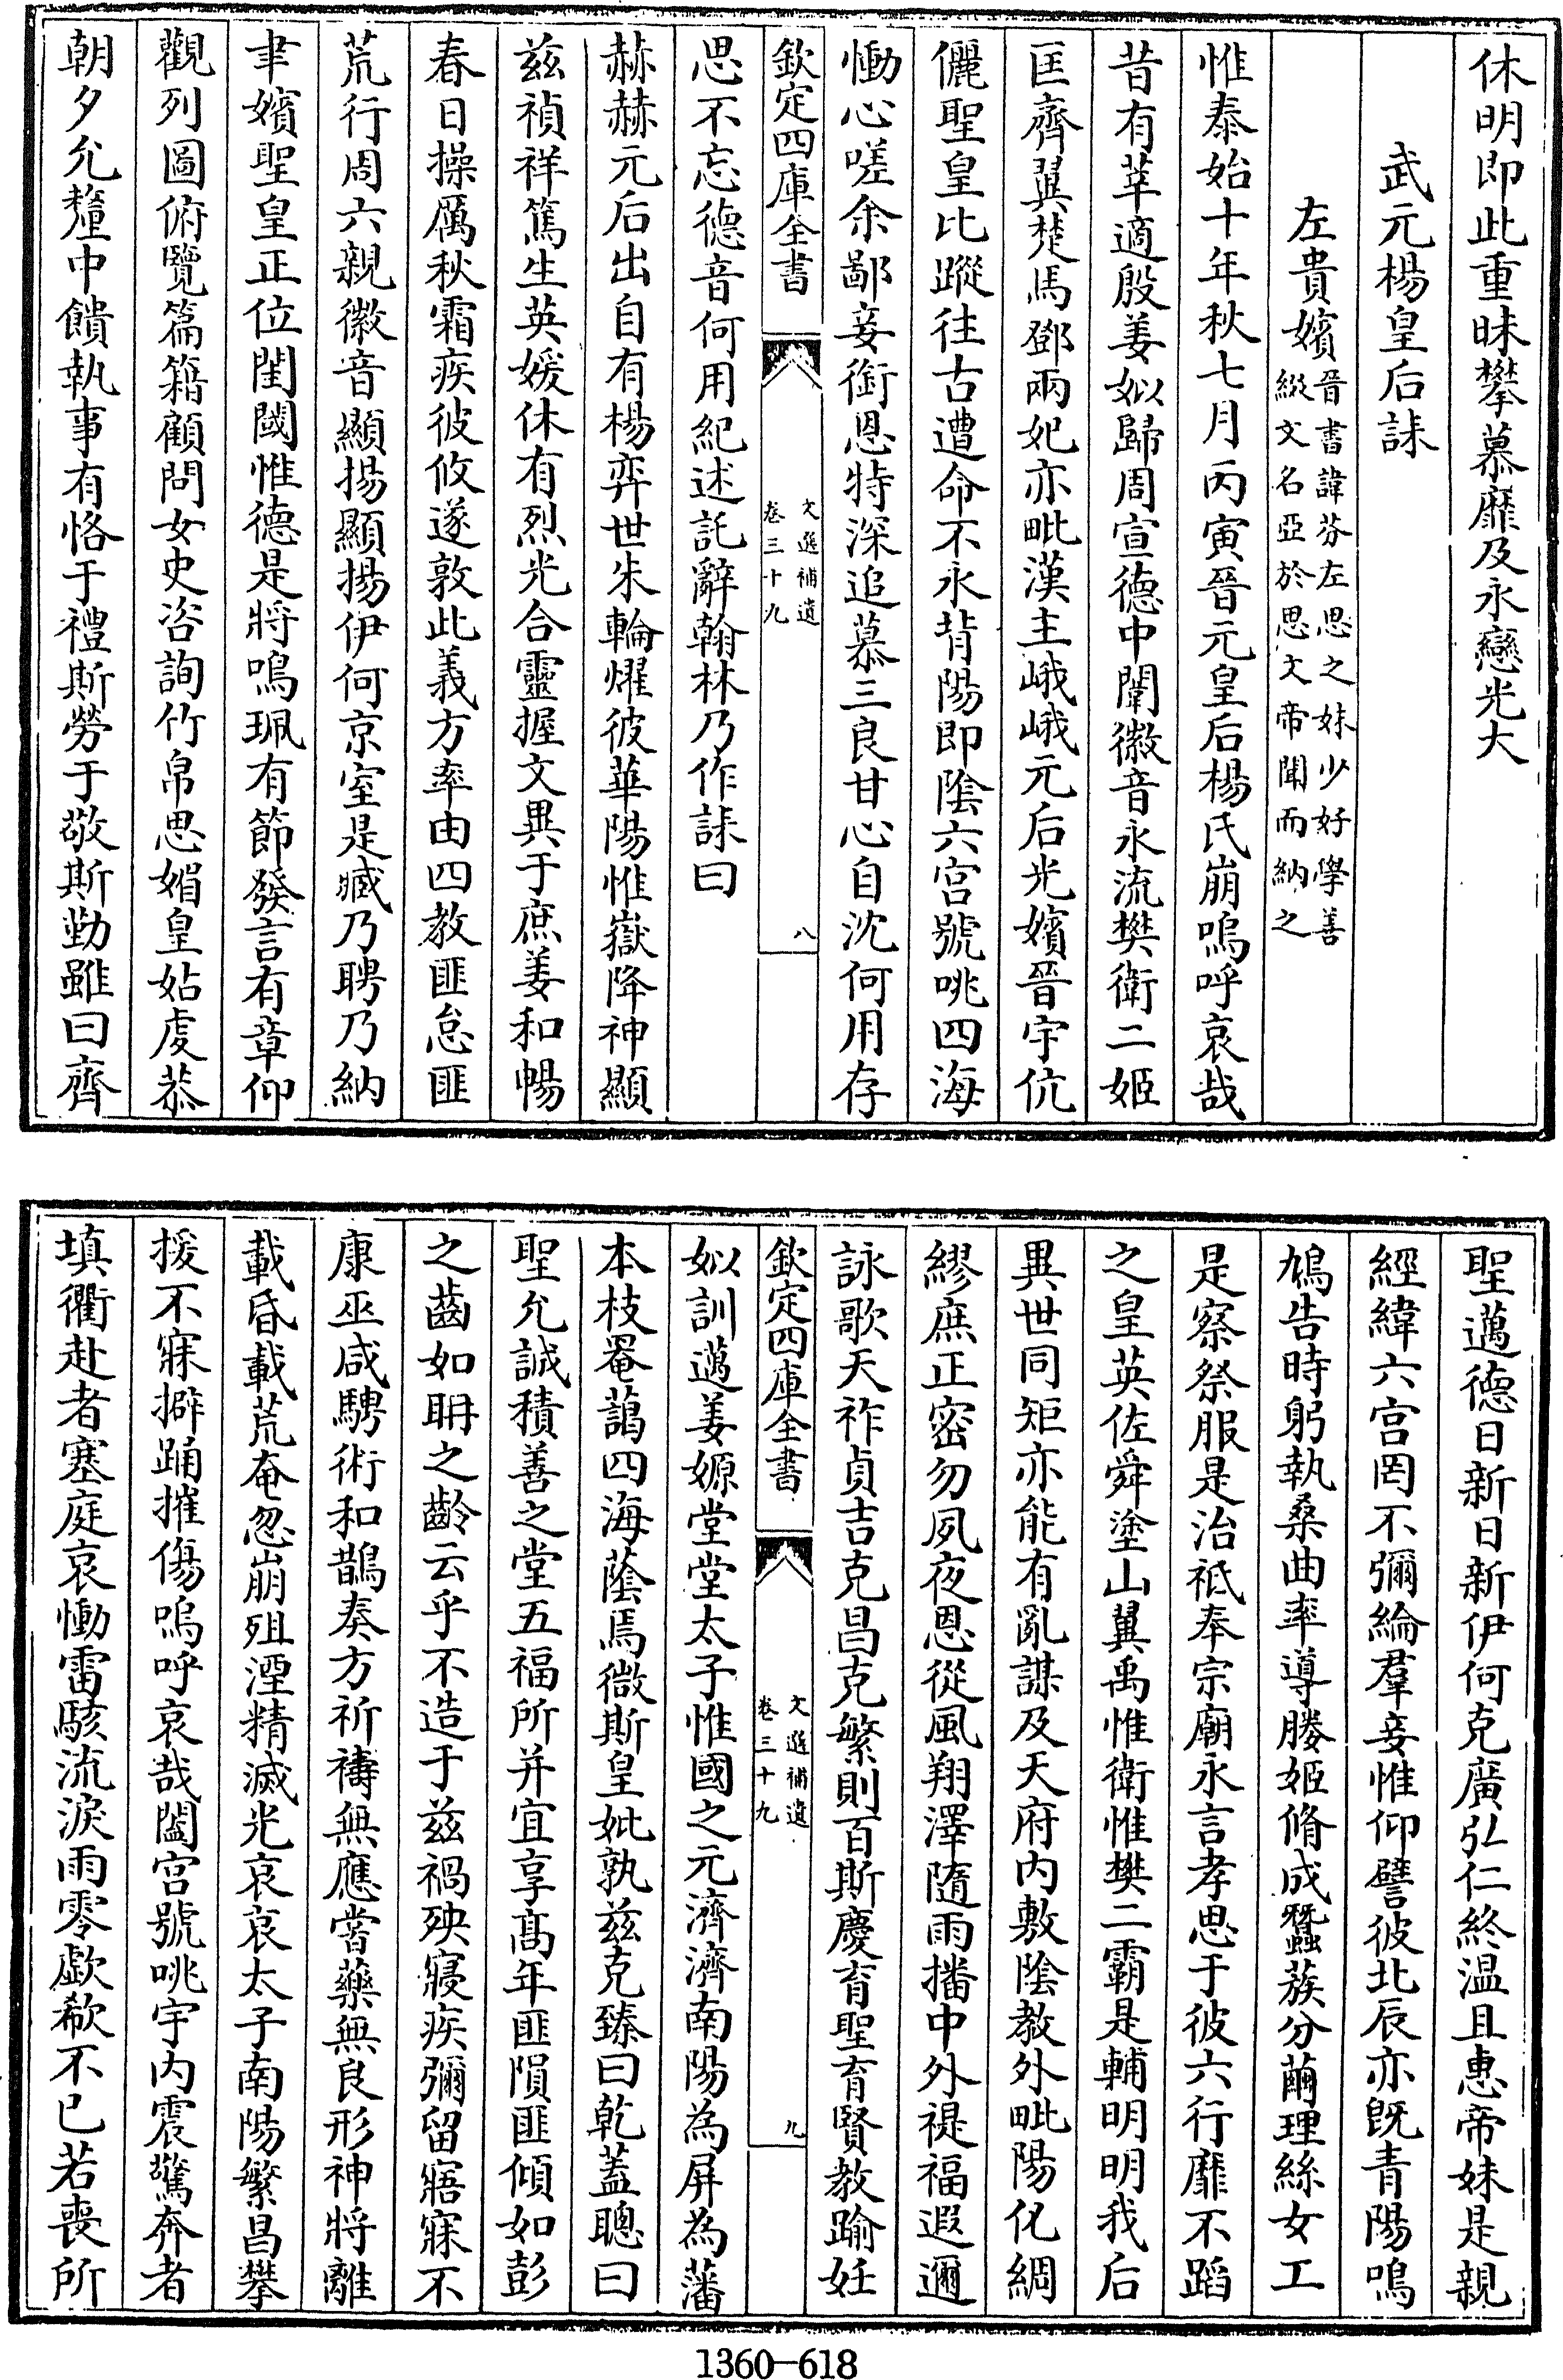 休明即此重昧攀慕靡及永戀光大
武元楊皇后誄
左貴嬪晉書諱芬左思之妹少好學善
綴文名亞於思文帝聞而納之
惟泰始十年秋七月丙寅晉元皇后楊氏崩嗚呼哀哉
昔有莘適殷姜姒歸周宣德中闈徽音永流樊衛二姬
匡齊翼楚馬鄧兩妃亦毗漢主峨峨元后光嬪晉宇伉
儷聖皇比蹤往古遭命不永背陽即陰六宮號咷四海
慟心嗟余鄙妾銜恩特深追慕三良甘心自沈何用存
欽定四庫全書
文選補遺
卷三十九
八
思不忘德音何用紀述託辭翰林乃作誄曰
赫赫元后出自有楊弈世朱輪燿彼華陽惟嶽降神顯
兹禎祥篤生英媛休有烈光合靈握文異于庶姜和暢
春日操厲秋霜疾彼攸遂敦此義方率由四教匪怠匪
荒行周六親徽音顯揚顯揚伊何京室是臧乃聘乃納
聿嬪聖皇正位閨閾惟德是將鳴珮有節發言有章仰
觀列圖俯覽篇籍顧問女史咨詢竹帛思媚皇姑虔恭
朝夕允釐中饋執事有恪于禮斯勞于敬斯勤雖曰齊
聖邁德日新日新伊何克廣弘仁終温且惠帝妹是親
經緯六宮罔不彌綸羣妾惟仰譬彼北辰亦既青陽鳴
鳩告時躬執桑曲率導媵姬脩成蠶蔟分繭理絲女工
是察祭服是治祗奉宗廟永言孝思于彼六行靡不蹈
之皇英佐舜塗山翼禹惟衛惟樊二霸是輔明明我后
異世同矩亦能有亂謀及天府内敷陰教外毗陽化綢
繆庶正密勿夙夜恩從風翔澤隨雨播中外禔福遐邇
詠歌天祚貞吉克昌克繁則百斯慶育聖育賢教踰妊
欽定四庫全書
文選補遺
卷三十九
九
姒訓邁姜嫄堂堂太子惟國之元濟濟南陽為屏為藩
本枝菴藹四海蔭焉微斯皇妣孰兹克臻曰乾蓋聰曰
聖允誠積善之堂五福所并宜享髙年匪隕匪傾如彭
之齒如聃之齡云乎不造于兹禍殃寢疾彌留寤寐不
康巫咸騁術和鵲奏方祈禱無應嘗藥無良形神將離
載昏載荒奄忽崩殂湮精滅光哀哀太子南陽繁昌攀
援不寐擗踊摧傷嗚呼哀哉闔宮號咷宇内震驚奔者
填衢赴者塞庭哀慟雷駭流淚雨零歔欷不已若喪所
1360-618